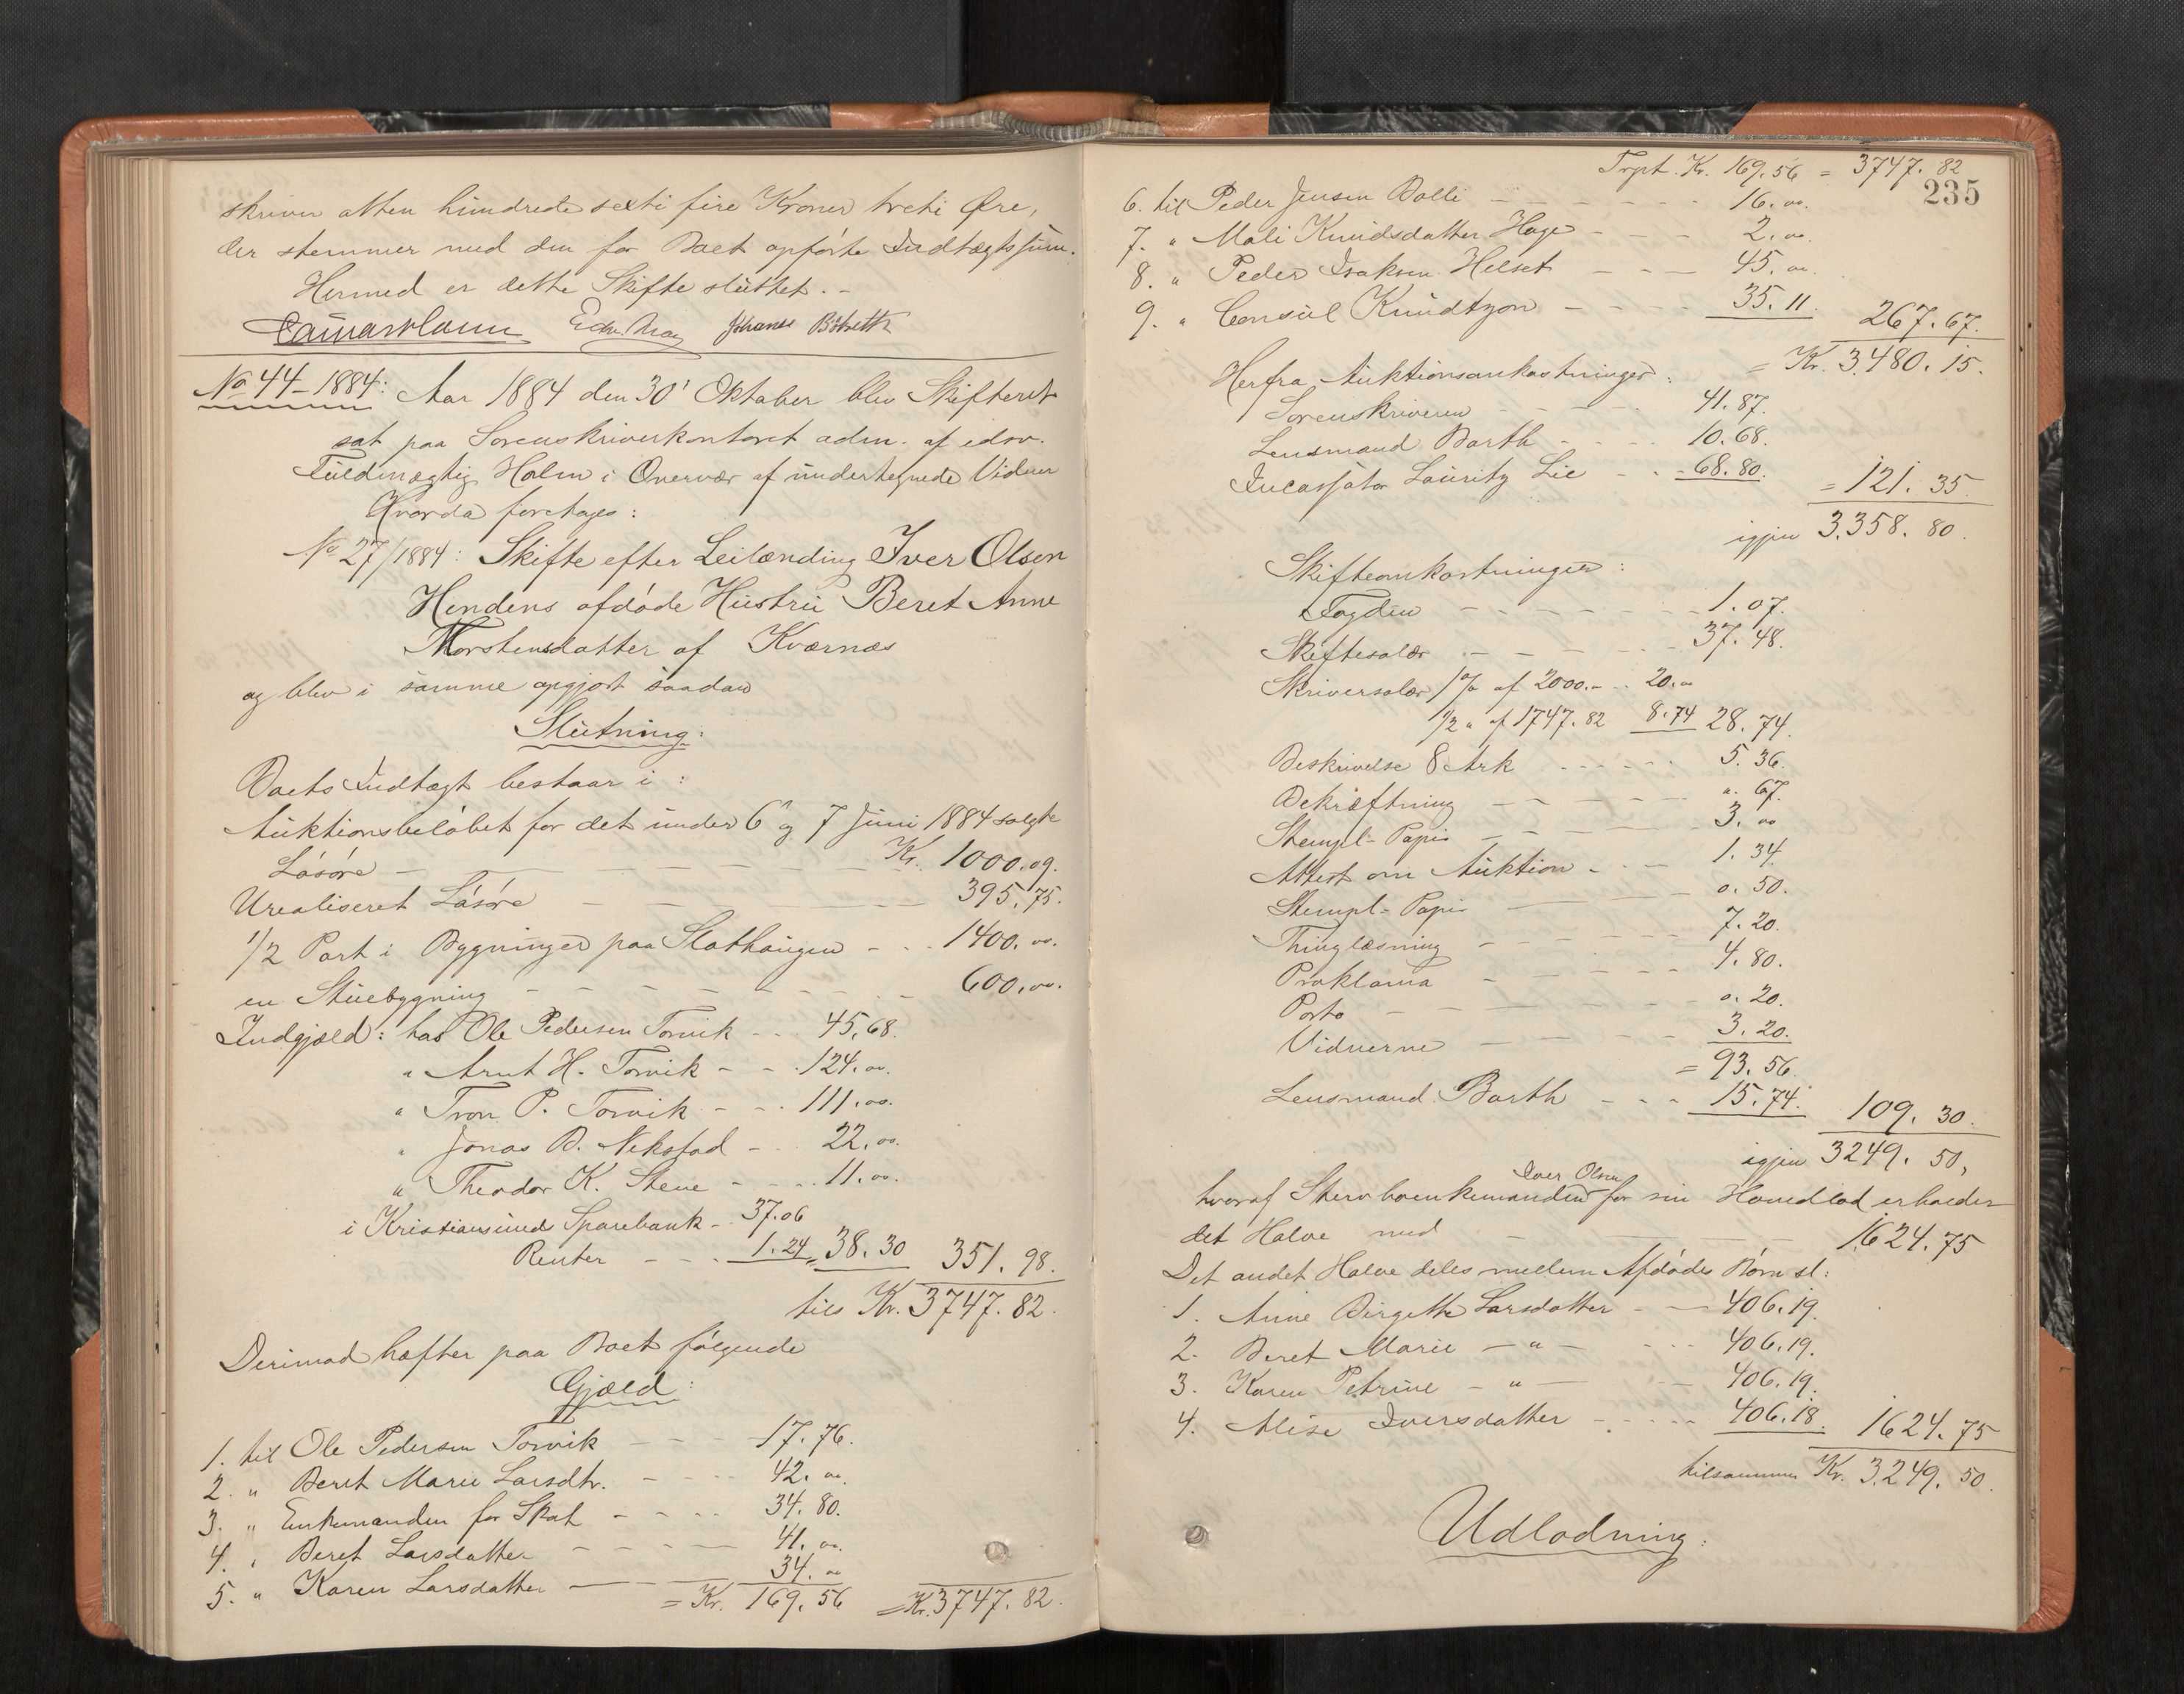 skriver atten hundrede sexti fire Kroner treti Øre,
der stemmer med den for Boet opførte Indtægtssum.
Hermed er dette Skifte sluttet. -
Johannes Botnetth
No 44 - 1884: Aar 1884 den 30' Oktober blev Skifteret
sat paa Sorenskriverkontoret adm. af edsv.
Fuldmægtig Holm i Overvær af undertegnede Vidner
Hvorda foretages:
No 27/1884: Skifte efter Leilænding Iver Olsen
Hendens afdøde Hustru Beret Anne
Morstensdatter af Kværnæs
og blev i samme opgjort saadan
Slutning:
Boets Indtægt bestaar i:
Auktionsbeløbet for det under 6 og 7 Juni 1884 solgte
Løsøre - - - Kr. 1000.09.
Urealiseret Løsøre - - - 395.75.
1/2 Part i Bygninger paa Slathaugen - - 1400.00.
en Stuebygning - - - 600.00.
Indgjæld: hos Ole Pedersen Torvik - - 45.68.
" Arnt H. Torvik - - 124.00.
" Tron P. Torvik - - 111.00.
" Jonas B. Nekstad - - 22.00.
" Theodor K. Stene - - 11.00.
i Kristiansund Sparebank - 37.06
Renter - - - 1.24 = 38.30 351.98.
tils Kr. 3747.82.
Derimod hæfter paa Boet følgende
Gjæld:
1. til Ole Pedersen Torvik - - 17.76.
2. " Beret Marie Larsdtr. - - 42.00.
3. " Enkemanden for Skat - - 34.80.
4. " Beret Larsdatter - - 41.00.
5. " Karen Larsdatter - - 34.00
= Kr. 169.56 = Kr. 3747.82.
Trpt. Kr. 169.56 = 3747.82
235
6. til Peder Jensen Bolli - - 16.00.
7. " Mali Knudsdatter Hage - - 2.00.
8. " Peder Isaksen Helset - - 45.00.
9. " Consul Knudtzon - - 35.11. 267.67.
= Kr. 3.480.15.
Herfra Auktionsomkostninger:
Sorenskriveren - - 41.87.
Lensmand Barth - - 10.68.
Incassator Lauritz Lie - - 68.80. = 121.35.
igjen 3.358.80.
Skifteomkostninger:
Fogden - - 1.07.
Skiftesalær - - 37.48.
Skriversalær 1% af 2000.- - 20.00
1/2 " af 1747.82 8.74 28.74.
Beskrivelse 8 Ark - - 5.36.
Bekræftning - - ". 67.
Stempl-Papir - - 3.00
Attest om Auktion - - 1.34.
Stempl-Papir - - 0.50.
Thinglæsning - - 7.20.
Proklama - - 4.80.
Porto - - 0.20.
Vidnerne - - 3.20.
= 93.56.
Lensmand Barth - - 15.74. 109.30.
igjen 3249.50,
Iver Olsen
hvoraf Stervboenkemanden for sin Hovedlod erholder
det Halve med - - 1624.75
Det andet Halve deles mellem Afdødes Børn sl:
1. Anne Birgitte Larsdatter - - 406.19.
2. Beret Marie - " - - 406.19.
3. Karen Petrine - " - - 406.19.
4. Alise Iversdatter - - 406.18. 1624.75
tilsammen Kr. 3.249.50.
Udlodning: